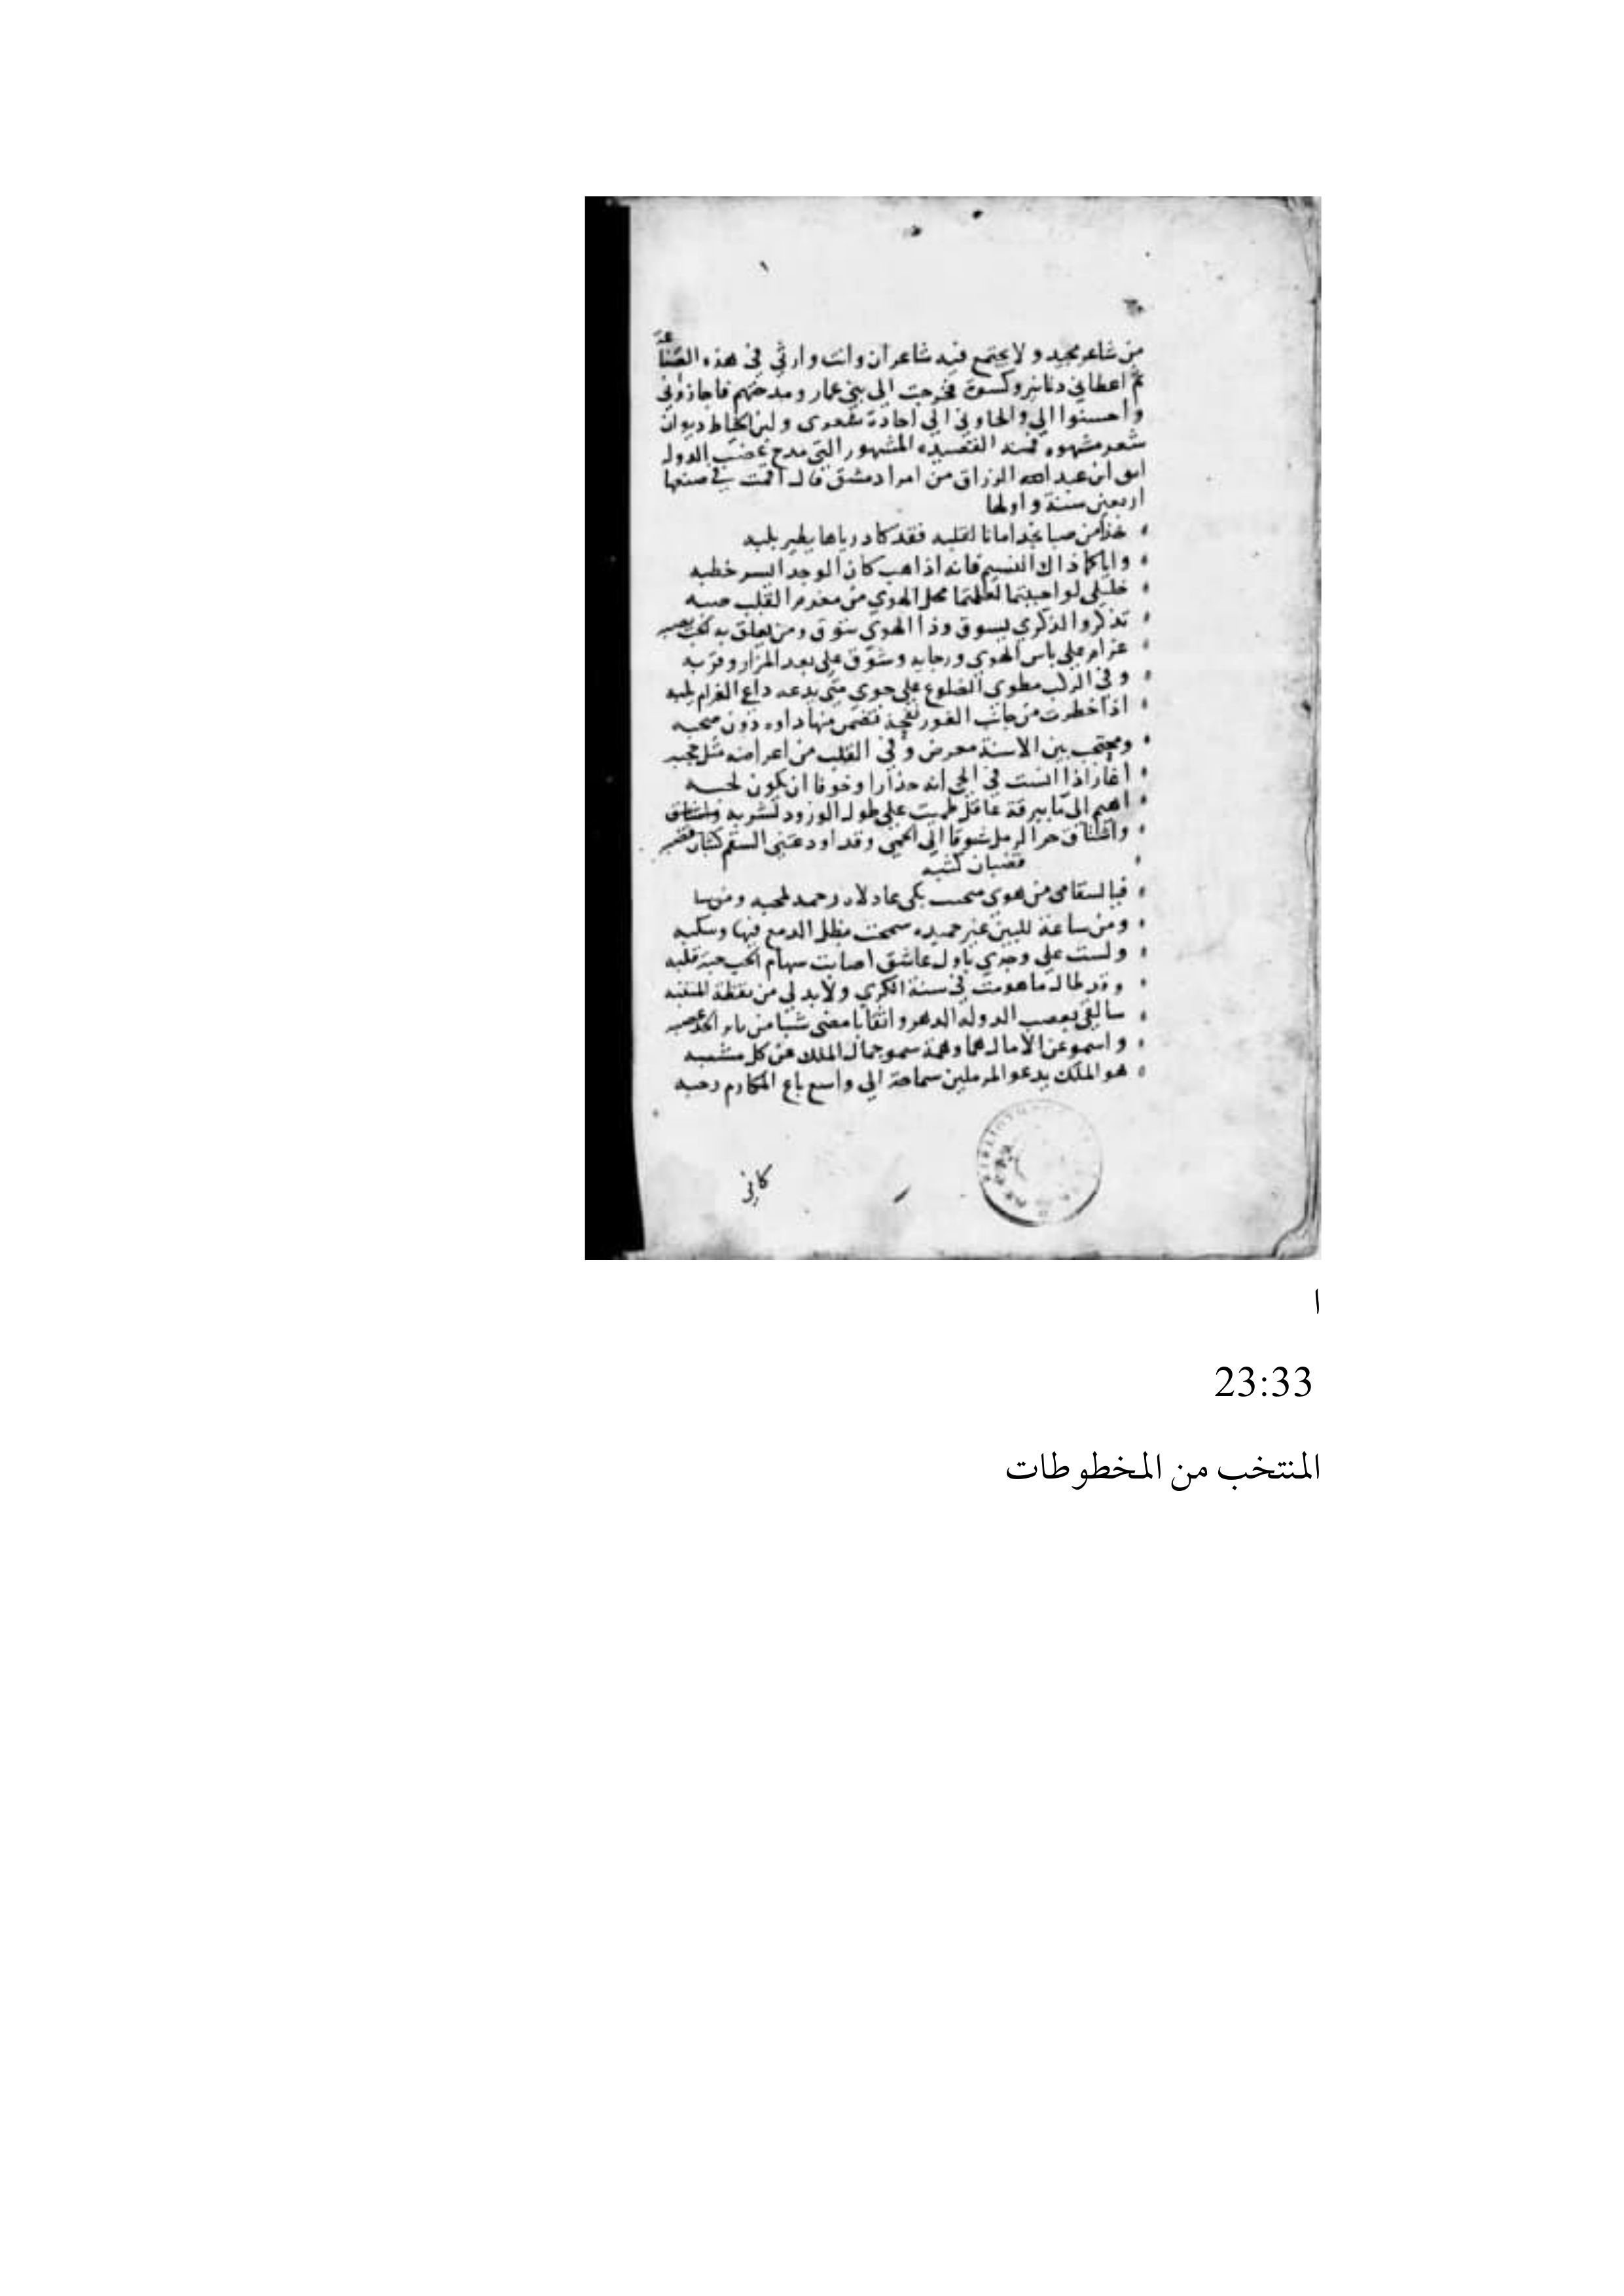 من شاعر مجيد ولا يجتمع فيه شاعران وانت وارثي في هذه الصناعة
ثم اعطاني دنانير وكسوة فخرجت الي بني عمار ومدحتهم فاجازوني
واحسنوا الي والجاوني الي اجادة شعري ولابن الخياط ديوان
شعر مشهور فمنه القصيده المشهور التي مدح بها عضب الدوله
ابق ابن عبد الرزاق من امرا دمشق قال اقمت في صنعها
اربعين سنة واولها
خذا من صبا نجد امانا لقلبه فقد كاد رياها يطير بلبه
واياكما ذاك النسيم فانه اذا هب كان الوجد ايسر خطبه
خليلي لو احببتما لعلمتما محل الهوي من مغرم القلب صبه
تذكر والذكري يسوق وذا الهوي يتوق ومن يعلق به الحب يصبه
غرام علي ياس الهوي ورجايه وشوق علي بعد المزار وقربه
وفي الركب مطوي الضلوع علي جوي متي يدعه داع الغرام يلبه
اذا خطرت من جانب الغور نفحة تضمن منها داوه دون صحبه
ومحتجب بين الاسنة معرض وفي القلب من اعراضه مثل حجبه
اغار اذا انست في الحي انه حذارا وخوفا ان يكون لحبه
اهيم الي ما ببرقة عاقل ظميت علي طول الورود لشربه
واشتاق حر الرمل شوقا الي الحمي وقد اودعتني السقم
قضبان كثبه
فيالسقامي من هوي متجنب بكي عاذلاه رحمة لمحبه
ومن ساعة للبين غير حميده سمحت بطل الدمع فيها وسكبه
ولست علي وجدي باول عاشق اصابت سهام الحب حبة قلبه
وقد طال ما هومت في سنة الكري ولابد لي من يقظة المتنبه
سالقي بعضب الدولة الدهر واثقا بامضي شبا من
واسمو عن الامال هما وهمة سمو جمال الملك عن كل مشبه
هو الملك يدعو المرملين سماحة الي واسع باع المكارم رحبه
ا
23:33
المنتخب من المخطوطات